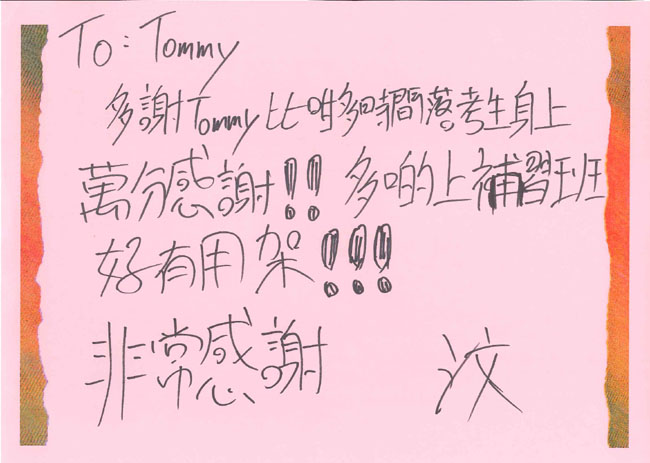 To: Tommy
多謝Tommy比咁多時間落考生身上
萬分感謝!! 多啲上補習班
好有用架!!!
非常感謝 汶